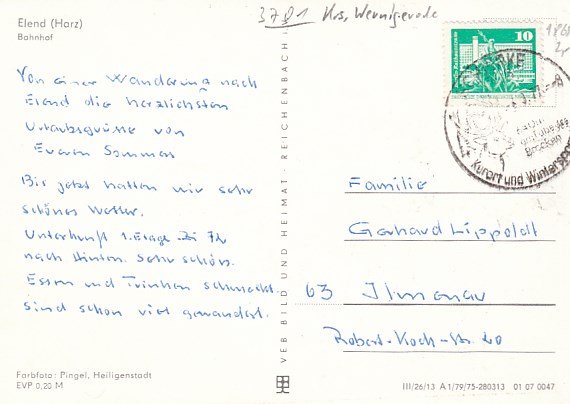 Elend (Harz)
Bahnhof
3701 Krs. Wernigerode
10
Kurort und Winterspor
Brocken
Von einer Wanderung nach
Elend die herzlichsten
Urlaubsgrüsse von
Eueren Sommers
Bis jetzt hatten wir sehr
schönes Wetter.
Unterkunft 1. Etage Zi 72
nach hinten. Sehr schön.
Essen und Trinken schmeckt.
Sind schon viel gewandert.
Familie
Gerhard Lippoldt
63 Ilmenau
Robert-Koch-Str. 20
VEB BILD UND HEIMAT REICHENBACH i.
Farbfoto: Pingel, Heiligenstadt
EVP 0,20 M
III/26/13 A 1/79/75-280313 01 07 0047